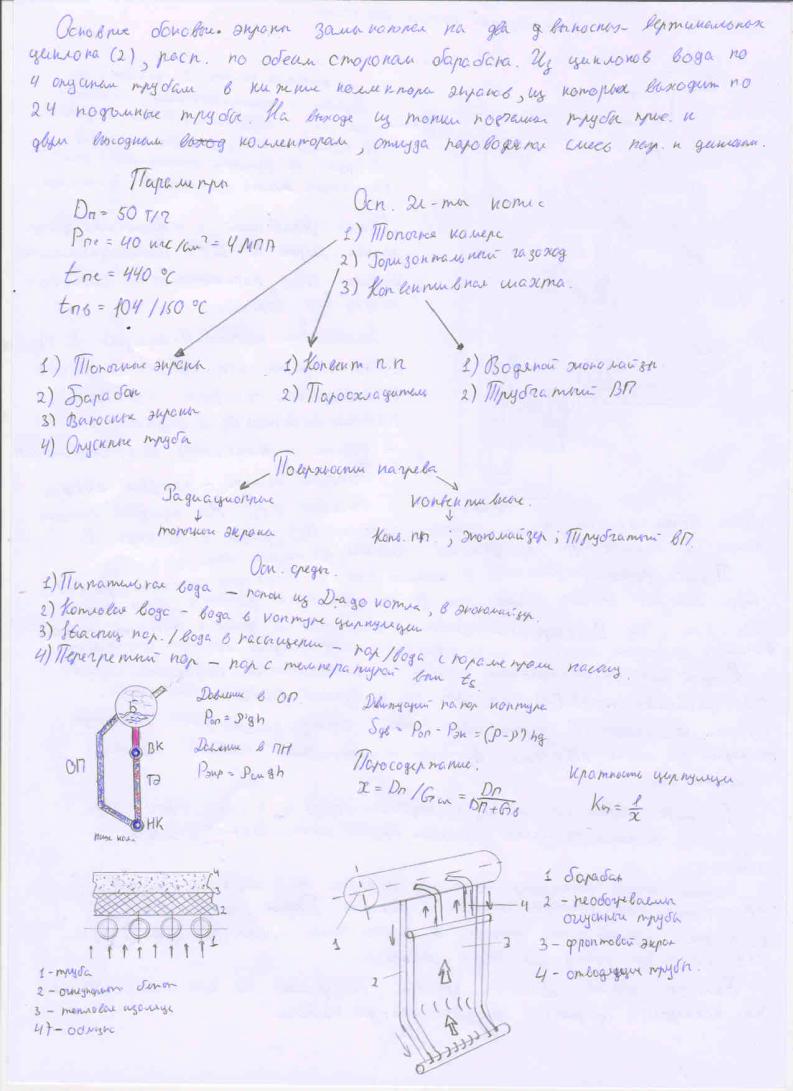 Основные боковые экраны замыкаются на два выносных вертикальных
циклона (2), расп. по обеим сторонам барабана. Из циклонов вода по
4 опускным трубам в нижние коллектора экранов, из которых выходит по
24 подъемные трубы. На выходе из топки трубы прис. к
двум выходным коллекторам, откуда пароводяная смесь напр. к циклонам.
Параметры
Dп = 50 т/г
Pпе = 40 кгс/см² = 4 МПА
tпе = 440 °C
tпв = 104/150 °C
Осн. эл-ты котла
1) Топочная камера
2) Горизонтальный газоход
3) Конвективная шахта.
1) Топочные экраны
2) Барабан
3) Выносные экраны
4) Опускные труба
1) Конвект. п.п
2) Пароохладитель
1) Водяной экономайзер
2) Трубчатый ВП
Поверхности нагрева
Радиационные
конвективные.
топочные экраны
Конв. пп. ; экономайзер ; Трубчатый ВП.
Осн. среды.
1) Питательная вода – из D-а до котла, в экономайзер.
2) Котловая вода – вода в контуре циркуляции
3) пар./вода в насыщении – пар/вода с параметрами насыщ.
4) Перегретый пар – пар с температурой ts
Б
ОП
ВК
ТЭ
НК
ниж кол.
Давление в ОП
Pоп = ρ'gh
Давление в ПН
Pэкр = ρсм gh
Движущий напор контура
Sдв = Pоп - Pэк = (ρ-ρ) hg
Паросодержание:
x = Dп / Gсм = Dп / Dп+Gв
Кратность циркуляции
Kц = 1/x
4
3
2
1
1 - труба
2 – огнеупорный бетон
3 – тепловая изоляция
4 – обмазка
1
2
3
4
1 барабан
2 – необогреваемы
опускные труба
3 – фронтовой экран
4 – отводящие трубы.